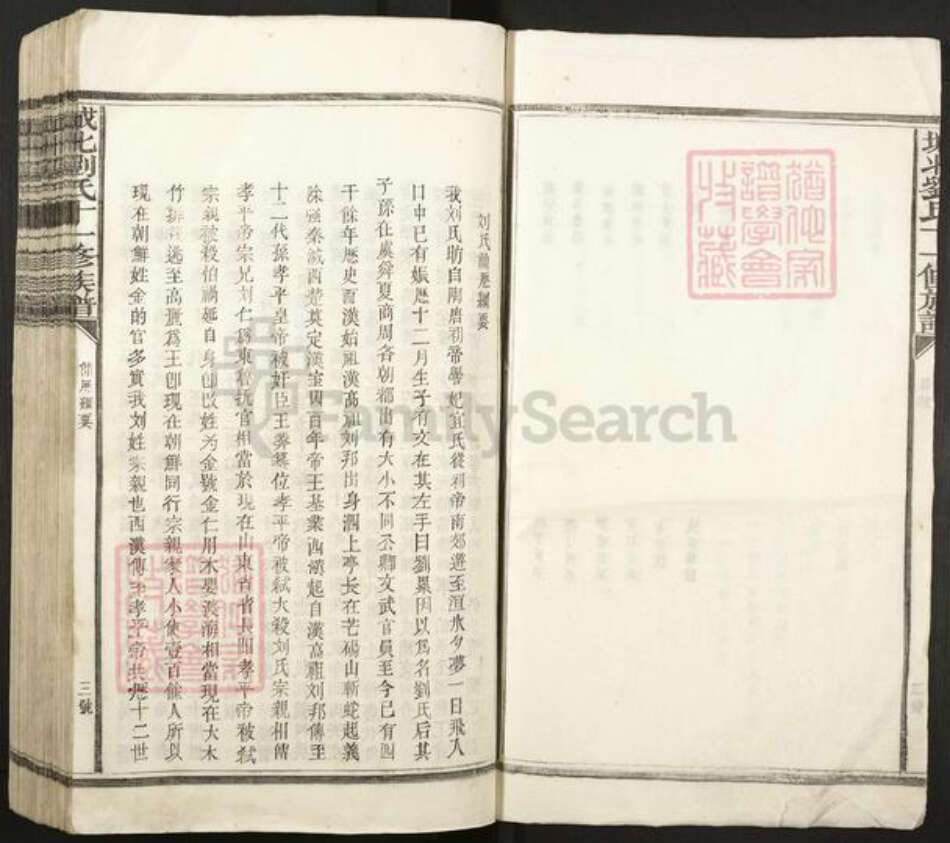 刘氏
我刘氏昉自陶唐初帝嚳妃宜氏從祠帝南郊遊至洹水夕夢一日飛入
口中已有娠歷十二月生子有文在其左手曰劉累因以爲名劉氏后其
子孫在虞舜夏商周各朝都出有大小不同公卿文武官員至今已有四
千餘年歷史西漢始祖漢高祖刘邦出身泗上亭长在芒碭山斬蛇起義
除强秦滅西楚奠定漢室四百年帝王基業西漢起自漢高祖刘邦傳至
十二代孫孝平皇帝被奸臣王莽篡位孝平帝被弑大殺刘氏宗親相傳
孝平帝宗兄刘仁爲東官相當於現在山東省省長因孝平帝被弑
宗親被殺怕禍延自身即改姓为金號金仁用木嬰渡海相當現在大木
竹排逃至高麗爲王即現在朝鮮同行宗親家人小使壹百餘人所以
現在朝鮮姓金的官多實我刘姓宗親也西漢傳至孝平帝共歷十二世
城北劉氏十一修族譜
三號
城北劉氏十一修族譜
猶他家譜學會收藏
FamilySearch